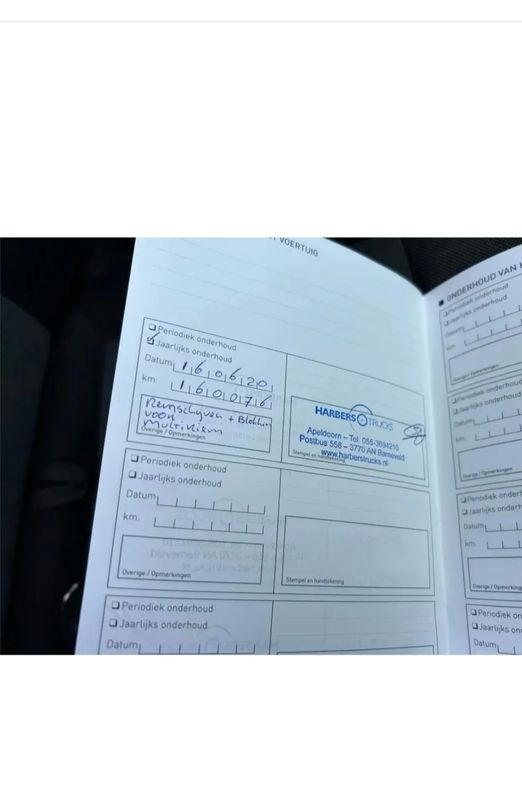 VOERTUIG
Periodiek onderhoud
Jaarlijks onderhoud
Datum 160620
km. 160076
Remschijven + Blokken
voor
Multiriem
Overige / Opmerkingen
HARBERS TRUCKS
Apeldoorn – Tel. 055-3694210
Postbus 558 – 3770 AN Barneveld
www.harberstrucks.nl
Stempel en handtekening
Periodiek onderhoud
Jaarlijks onderhoud
Datum
km.
Overige / Opmerkingen
Stempel en handtekening
Periodiek onderhoud
Jaarlijks onderhoud
Datum
ONDERHOUD VAN
Periodiek onderhoud
Jaarlijks onderhoud
Datum
km.
Overige / Opmerkingen
Periodiek onderhoud
Jaarlijks onderhoud
Datum
km.
Overige / Opmerkingen
Periodiek onderhoud
Jaarlijks onderhoud
Datum
km.
Overige / Opmerkingen
Periodiek on
Jaarlijks on
Datum